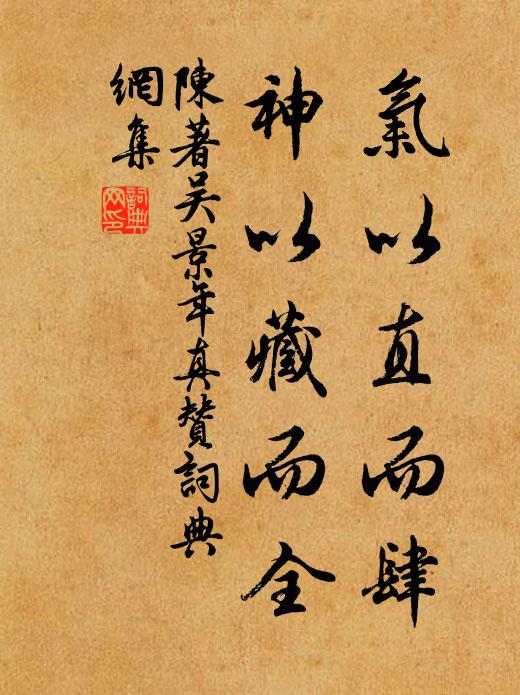 氣以直而肆
神以藏而全
陳著吴景年真贊詞典
網集
詞典
网印